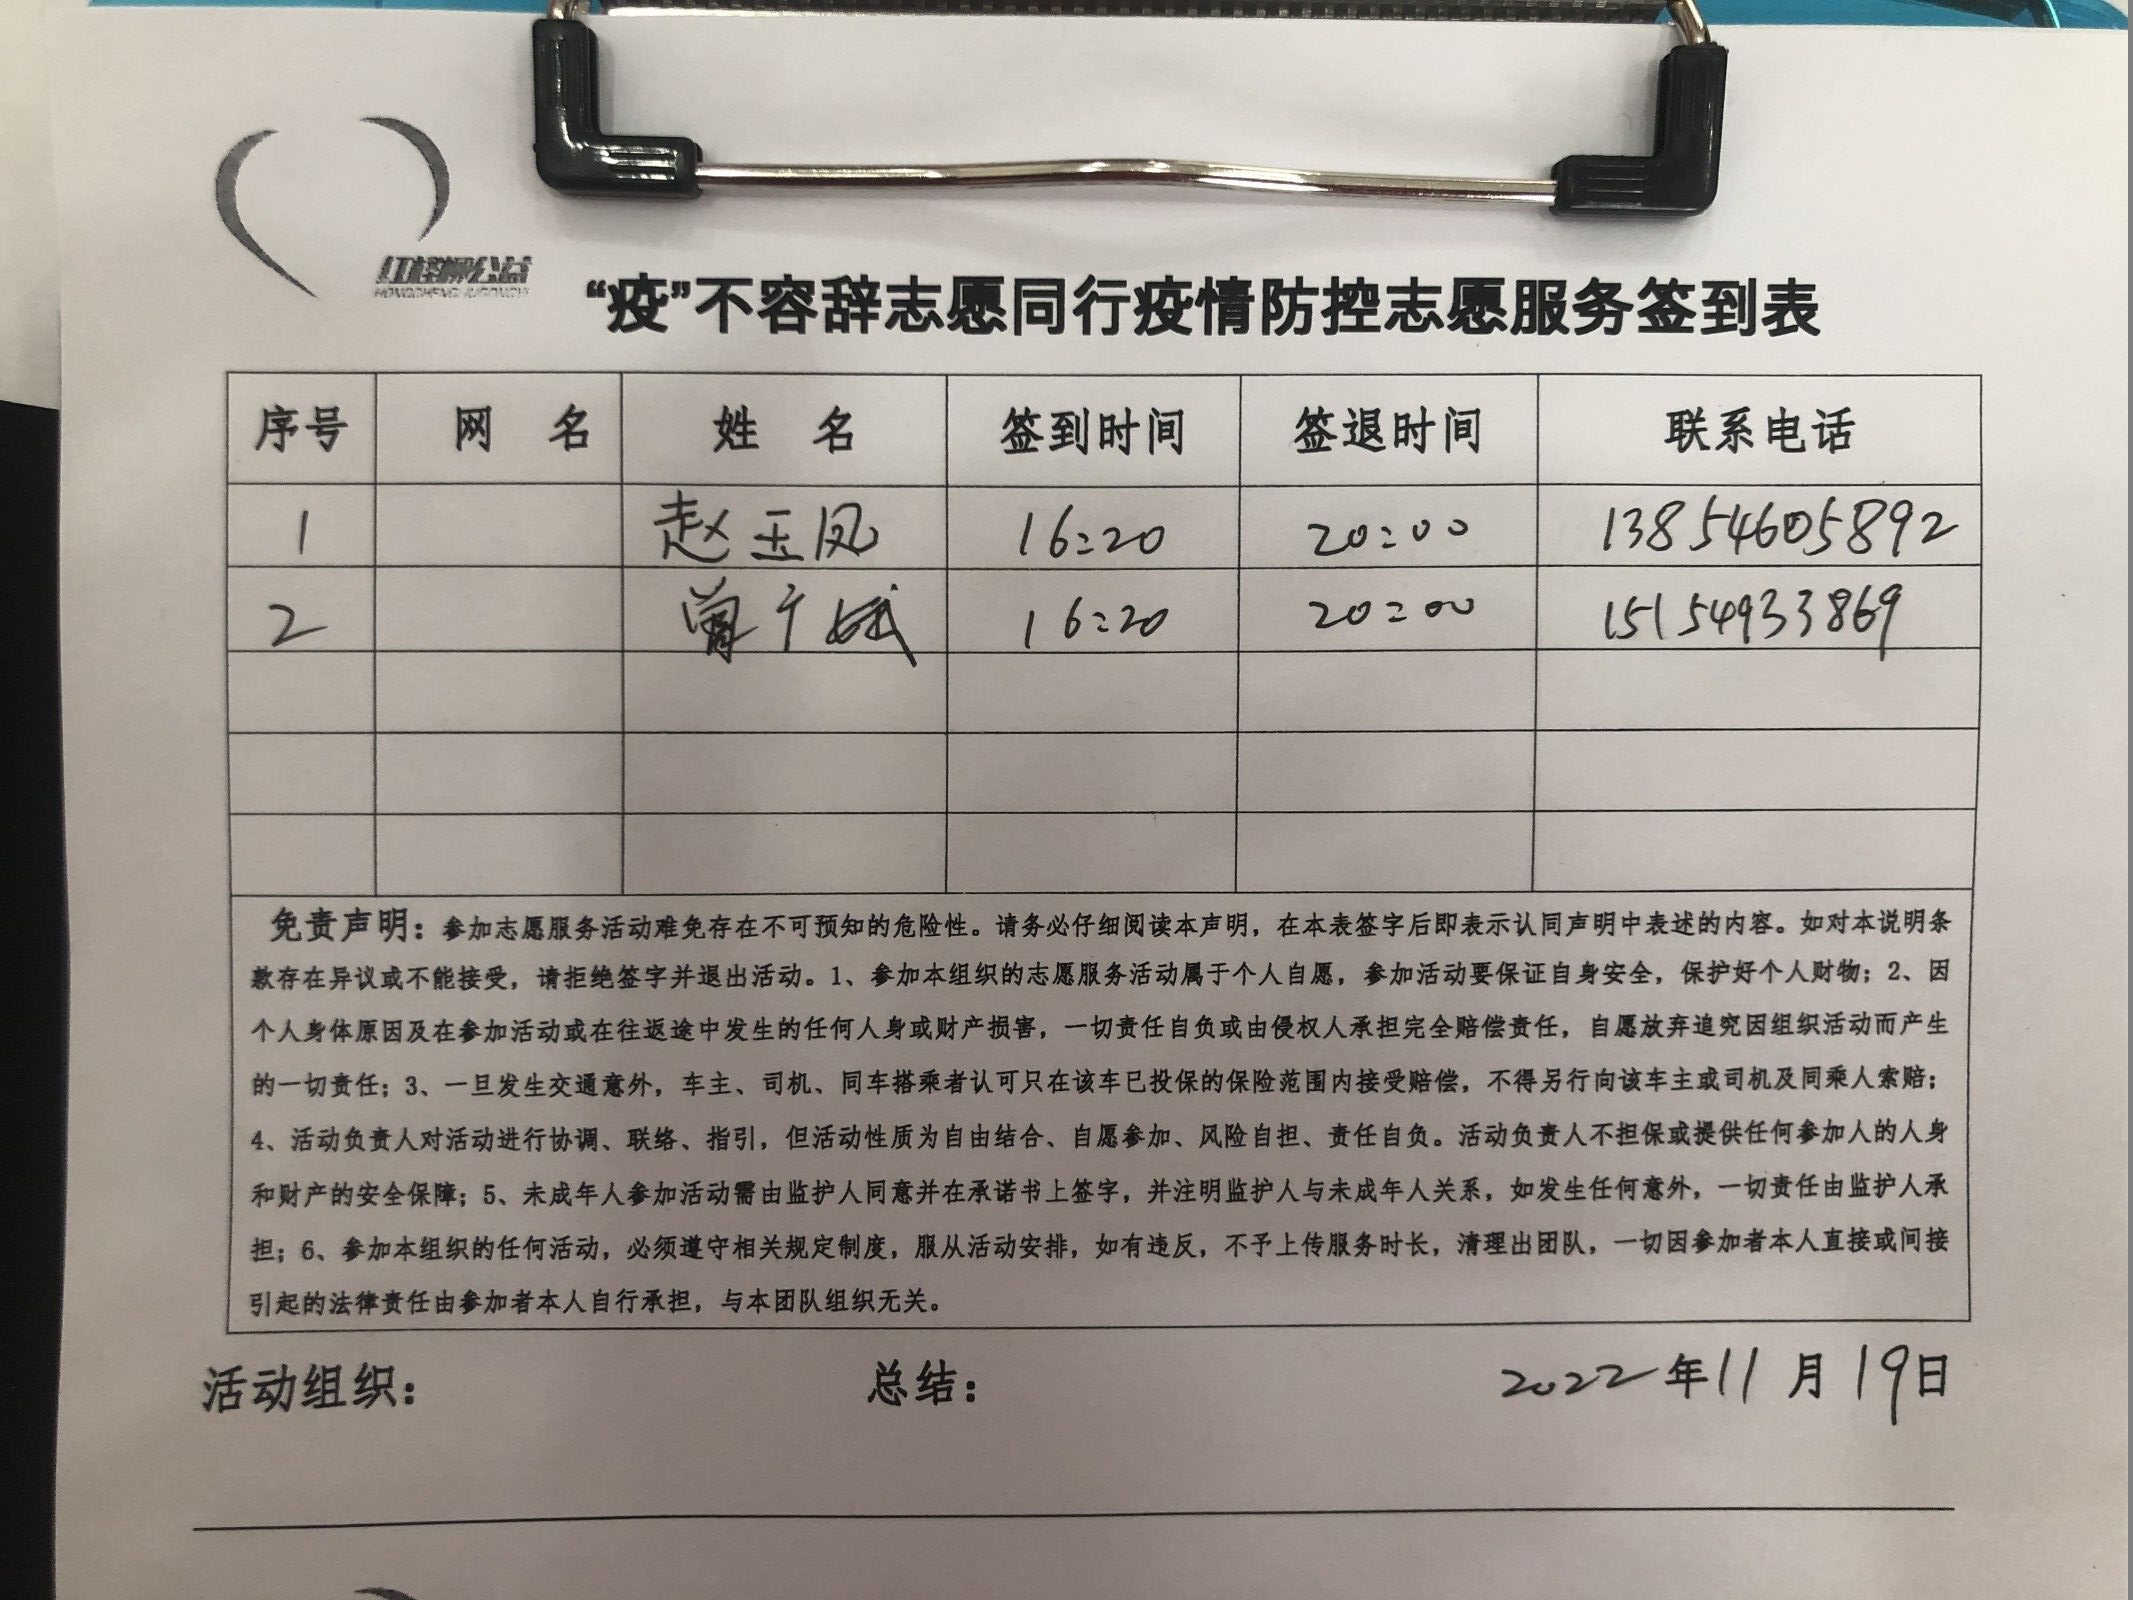 红柽柳公益
HONGCHENGLIUGONGYI
“疫”不容辞志愿同行疫情防控志愿服务签到表
序号 网 名 姓 名 签到时间 签退时间 联系电话
1 赵玉凤 16:20 20:00 13854605892
2 16:20 20:00 15154933869
免责声明：参加志愿服务活动难免存在不可预知的危险性。请务必仔细阅读本声明，在本表签字后即表示认同声明中表述的内容。如对本说明条
款存在异议或不能接受，请拒绝签字并退出活动。1、参加本组织的志愿服务活动属于个人自愿，参加活动要保证自身安全，保护好个人财物；2、因
个人身体原因及在参加活动或在往返途中发生的任何人身或财产损害，一切责任自负或由侵权人承担完全赔偿责任，自愿放弃追究因组织活动而产生
的一切责任；3、一旦发生交通意外，车主、司机、同车搭乘者认可只在该车已投保的保险范围内接受赔偿，不得另行向该车主或司机及同乘人索赔；
4、活动负责人对活动进行协调、联络、指引，但活动性质为自由结合、自愿参加、风险自担、责任自负。活动负责人不担保或提供任何参加人的人身
和财产的安全保障；5、未成年人参加活动需由监护人同意并在承诺书上签字，并注明监护人与未成年人关系，如发生任何意外，一切责任由监护人承
担；6、参加本组织的任何活动，必须遵守相关规定制度，服从活动安排，如有违反，不予上传服务时长，清理出团队，一切因参加者本人直接或间接
引起的法律责任由参加者本人自行承担，与本团队组织无关。
活动组织： 总结： 2022年11月19日